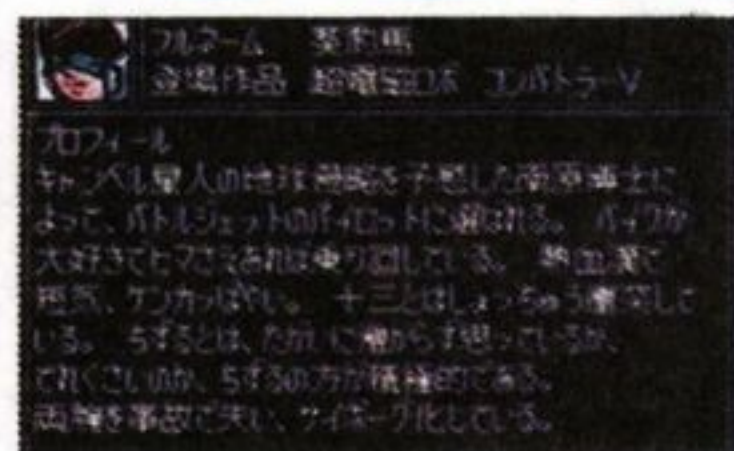 フルネーム 葵豹馬
登場作品 超電磁ロボ コンバトラーV
プロフィール
キャンベル星人の地球侵略を予感した南原博士に
よって、バトルジェットのパイロットに選ばれる。 バイクが
大好きでヒマさえあれば乗り回している。 熱血漢で
短気、ケンカっぱやい。 十三とはしょっちゅう衝突して
いる。 ちずるとは、たがいに憎からず思っているが、
てれくさいのか、ちずるの方が積極的である。
両腕を事故で失い、サイボーグ化している。